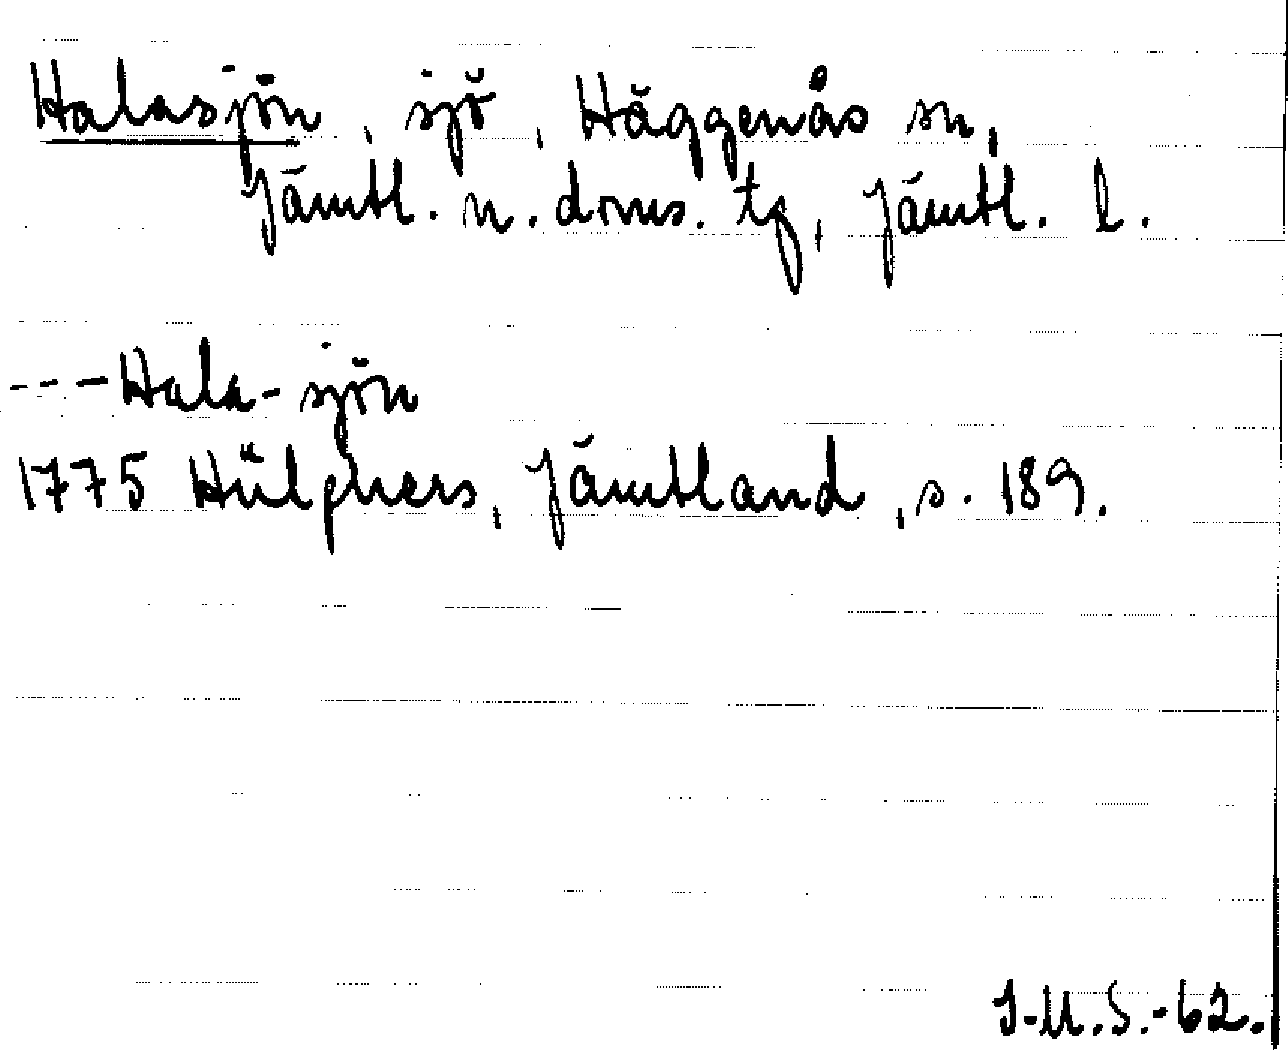 Halasjön, sjö, Häggenås sn,
Jämtl. n. doms. tg, Jämtl. l.
---Hala-sjön
1775 Hülphers, Jämtland, s. 189.
I.U.S.-62.